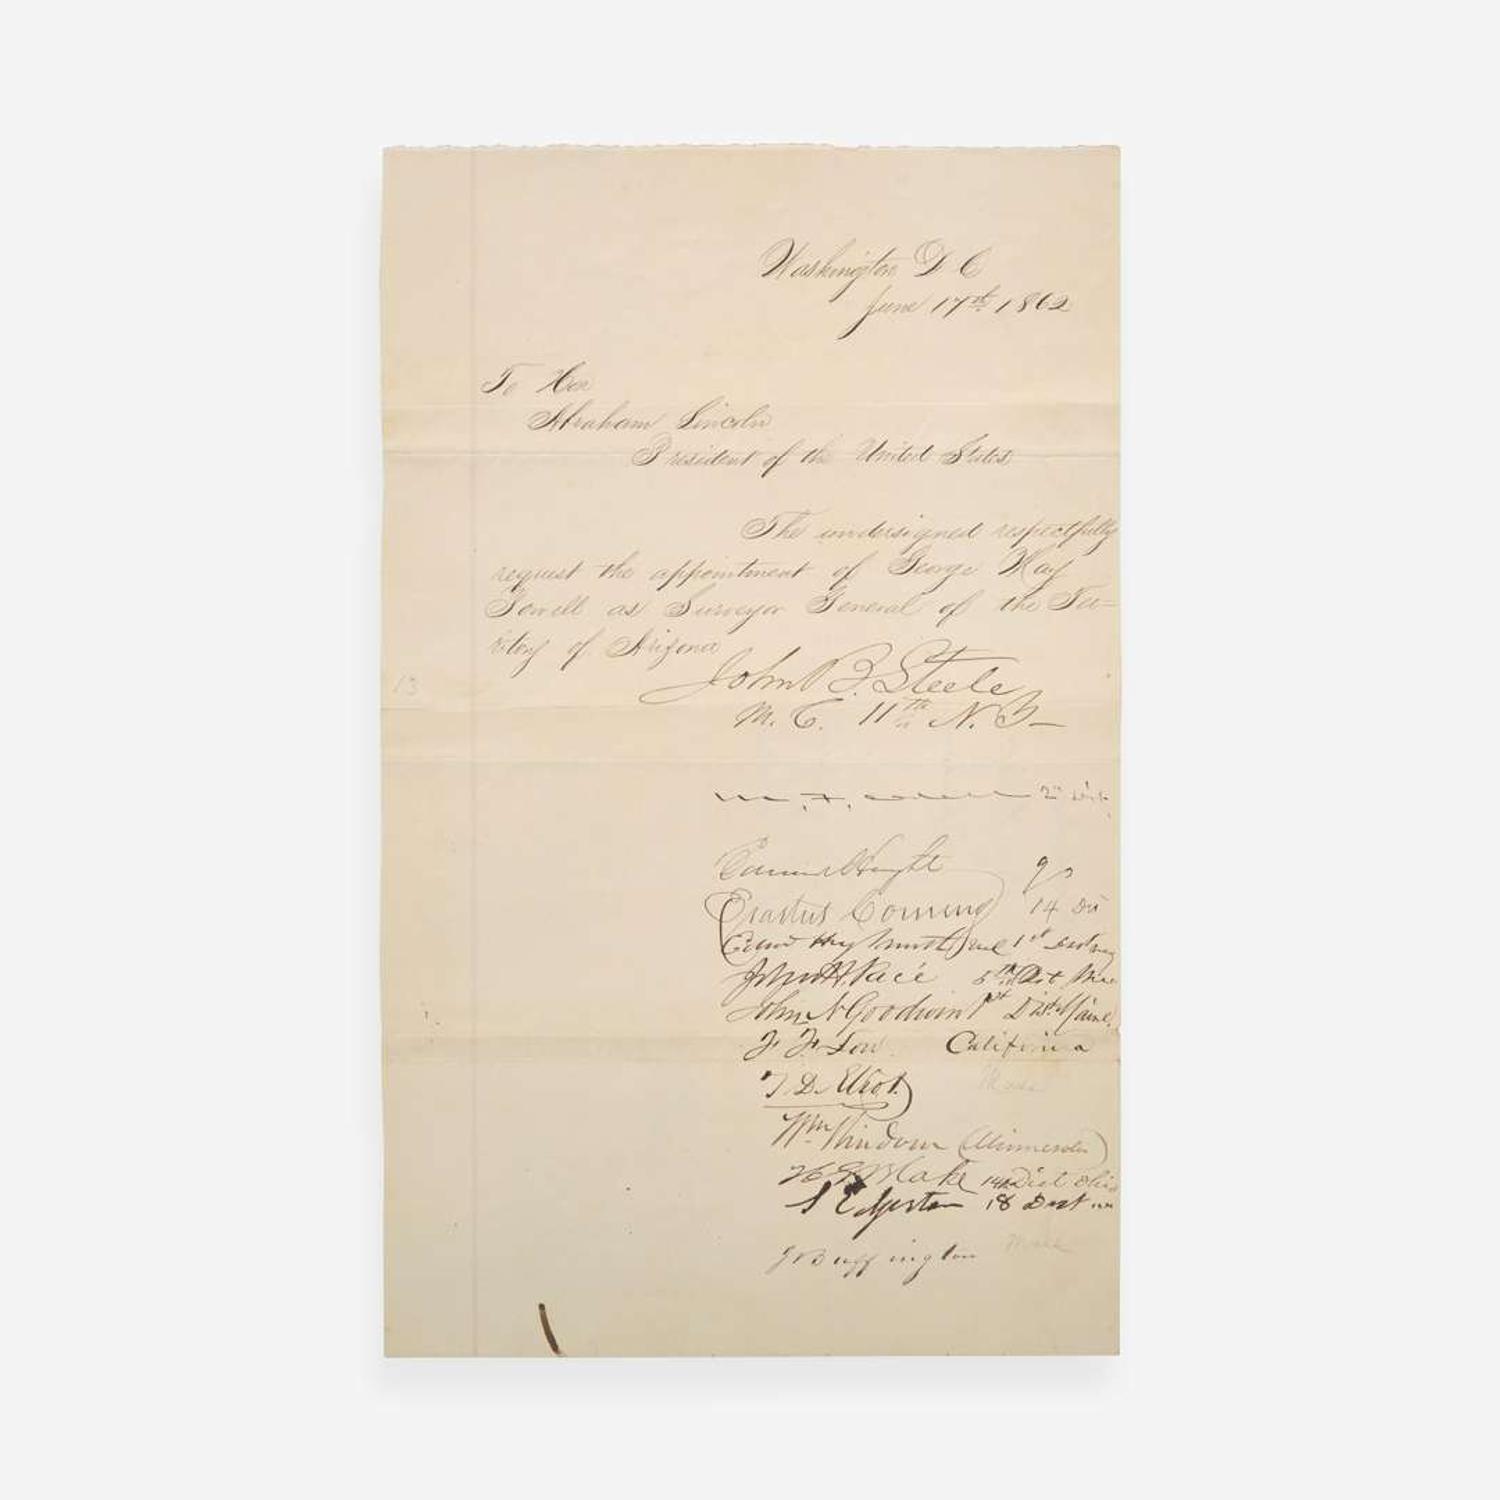 Washington D C
June 17th 1862
To Hon
Abraham Lincoln
President of the United States
The undersigned respectfully
request the appointment of George Way
Sowell as Surveyor General of the Ter=
ritory of Arizona
John B. Steele
M. C. 11th N. Y
13
2d Dist
9
Erastus Corning 14 Do
1st
John H. Rice 5th Dist Me
John N Goodwin 1st Dist Maine
F. F. Low California
T D. Eliot Mass
Wm Windom (Minnesota)
H G Blake 14th Dist Ohio
S Edgerton 18 Dist
J Buffington Mass